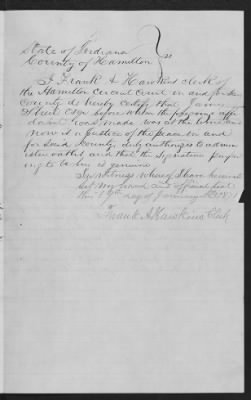 State of Indiana
County of Hamilton } ss
I Frank A Hawkins clerk of
the Hamilton Circuit Court in and for said
County do hereby certify that James
Esqr before whom the foregoing affi
davit was made was at the time and
now is a Justice of the peace in and
for said County duly authorized to admin
ister oaths and that the signature purport
ing to be his is genuine
In witness whereof I have hereunto
set my hand and official seal
this 19th day of January
Frank A Hawkins Clerk